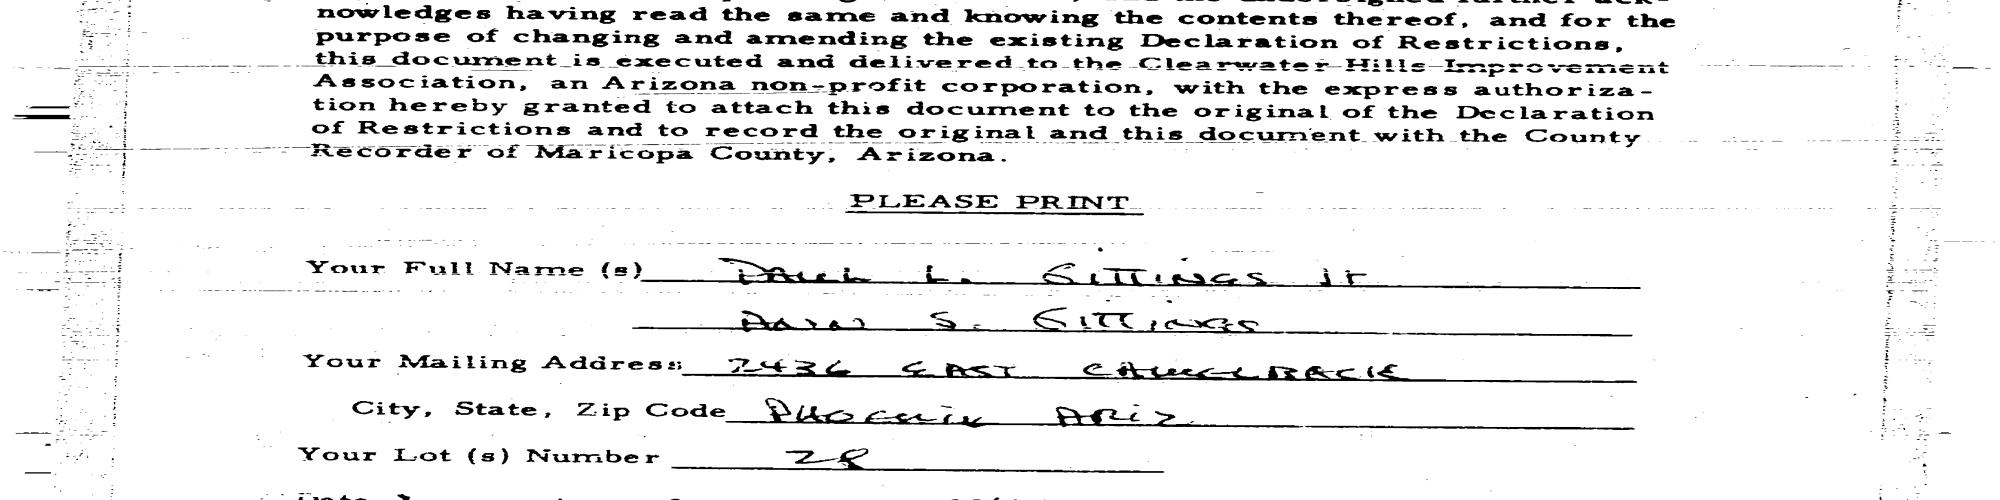 nowledges having read the same and knowing the contents thereof, and for the
purpose of changing and amending the existing Declaration of Restrictions,
this document is executed and delivered to the Clearwater Hills Improvement
Association, an Arizona non-profit corporation, with the express authoriza-
tion hereby granted to attach this document to the original of the Declaration
of Restrictions and to record the original and this document with the County
Recorder of Maricopa County, Arizona.
PLEASE PRINT
Your Full Name (s) L. GITTINGS Jr
S. GITTINGS
Your Mailing Address: 2436 EAST CAMELBACK
City, State, Zip Code Phoenix ARIZ
Your Lot (s) Number 28